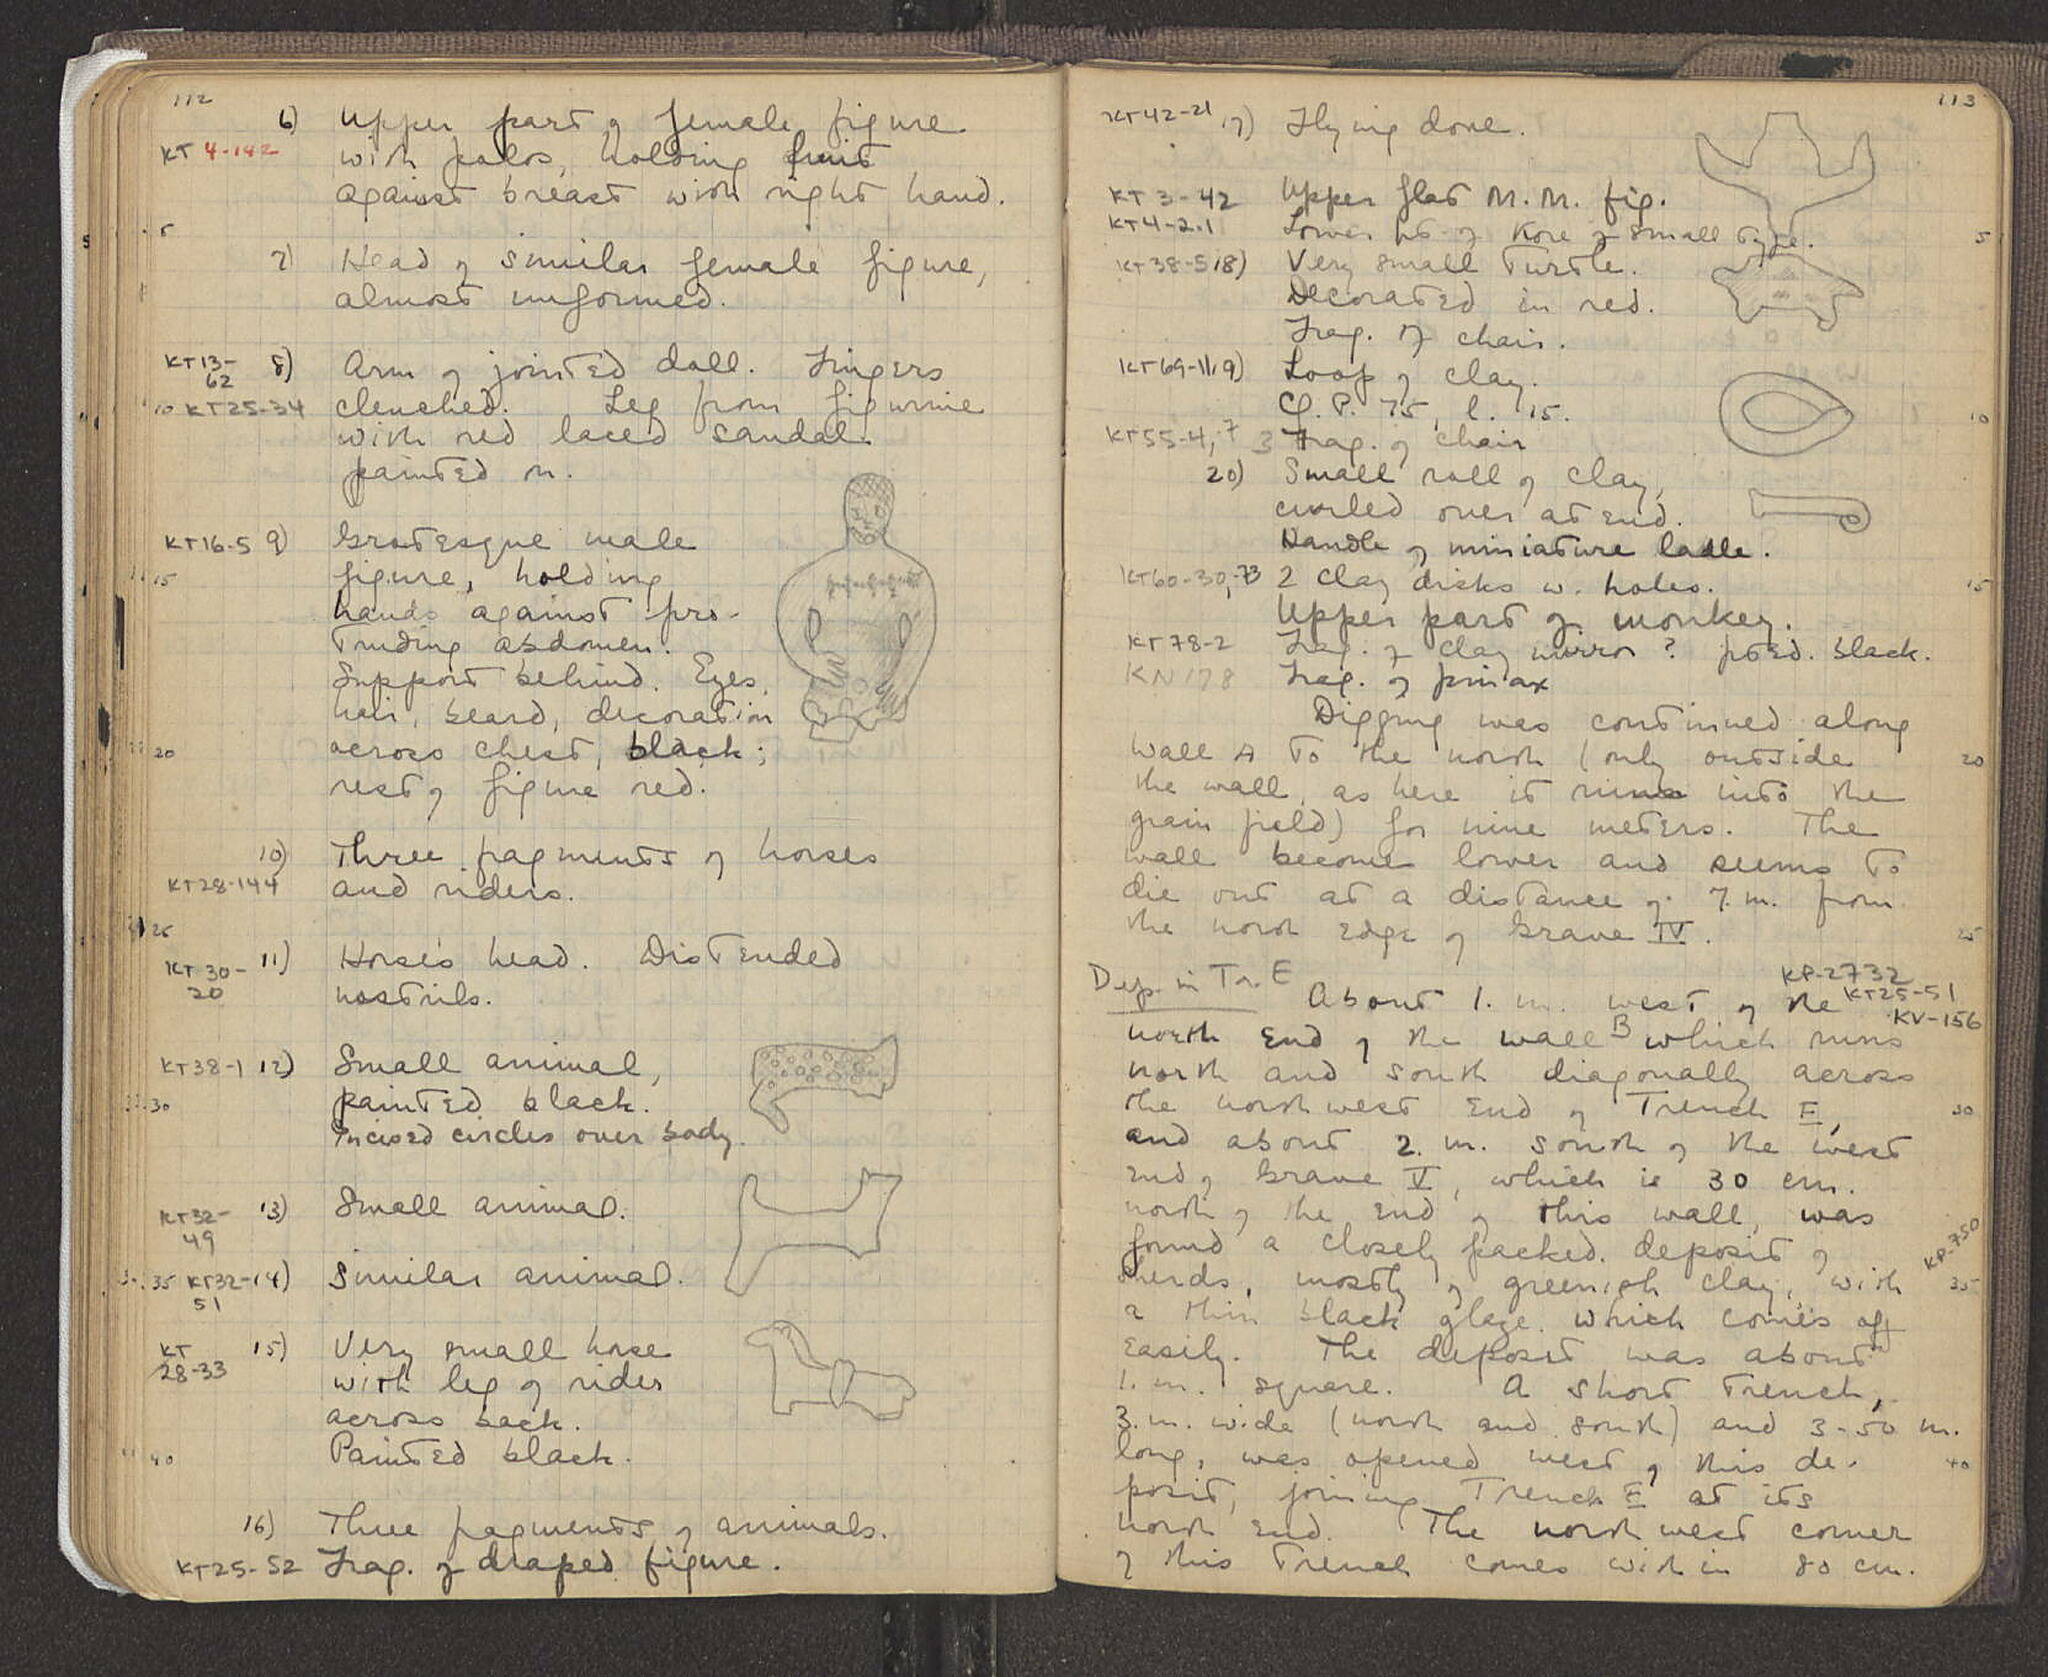 112
6) Upper part of female figure
KT 4-142 with polos, holding fruit
against breast with right hand.
5
7) Head of similar female figure,
almost unformed.
KT13-62 8) Arm of jointed doll. Fingers
10 KT25-34 clenched. Leg from figurine
with red laced sandal
painted on.
KT16-5 9) Grotesque male
15 figure, holding
hands against pro-
truding abdomen.
Support behind. Eyes,
hair, beard, decoration
20 across chest, black;
rest of figure red.
10) Three fragments of horses
KT28-144 and riders.
25
KT30-20 11) Horse's head. Distended
nostrils.
KT38-1 12) Small animal,
30 painted black.
Incised circles over body.
KT32-49 13) Small animal.
35 KT32-51 14) Similar animal.
KT28-33 15) Very small horse
with leg of rider
across back.
40 Painted black.
16) Three fragments of animals.
KT25-52 Frag. of draped figure.
113
KT42-21 17) Flying dove.
KT3-42 Upper flat M.M. fig.
KT4-2.1 Lower pt. of Kore of small type. 5
KT38-5 18) Very small turtle.
Decorated in red.
Frag. of chair.
KT69-11 19) Loop of clay.
Cf. P. 75, l. 15. 10
KT55-4, 7 3 Frag. of chair
20) Small roll of clay,
curled over at end.
Handle of miniature ladle.
KT60-30,-73 2 clay disks w. holes. 15
Upper part of monkey.
KT78-2 Frag. of clay mirror? pted. black.
KN178 Frag. of pinax
Digging was continued along
wall A to the north (only outside 20
the wall, as here it runs into the
grain field) for nine meters. The
wall becomes lower and seems to
die out at a distance of 7. m. from
the north edge of Grave IV. 25
Dep. in Tr. E KP-2732
About 1. m. west of the KT25-51
KV-156
north end of the wall B which runs
north and south diagonally across
the northwest end of Trench E, 30
and about 2. m. south of the west
end of Grave V, which is 30 cm.
north of the end of this wall, was
found a closely packed deposit of KP-750
sherds, mostly of greenish clay, with 35
a thin black glaze which comes off
easily. The deposit was about
1. m. square. A short trench,
3. m. wide (north and south) and 3-50 m.
long, was opened west of this de- 40
posit, joining Trench E at its
north end. The northwest corner
of this trench comes within 80 cm.